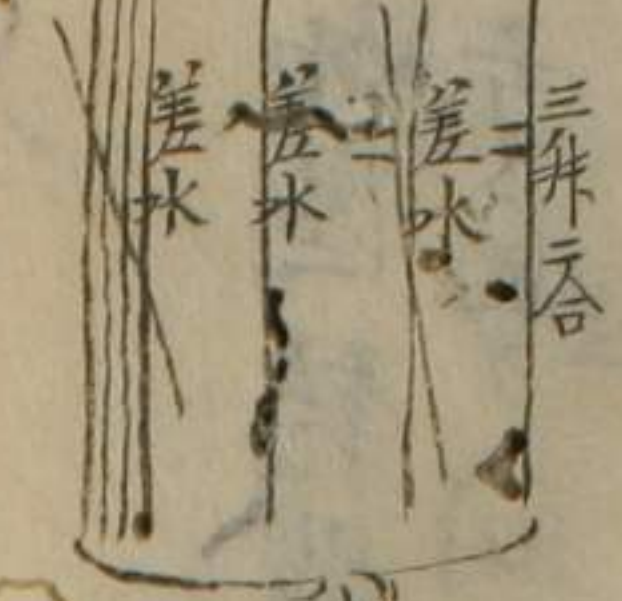 三升二合
差水
差水
差水